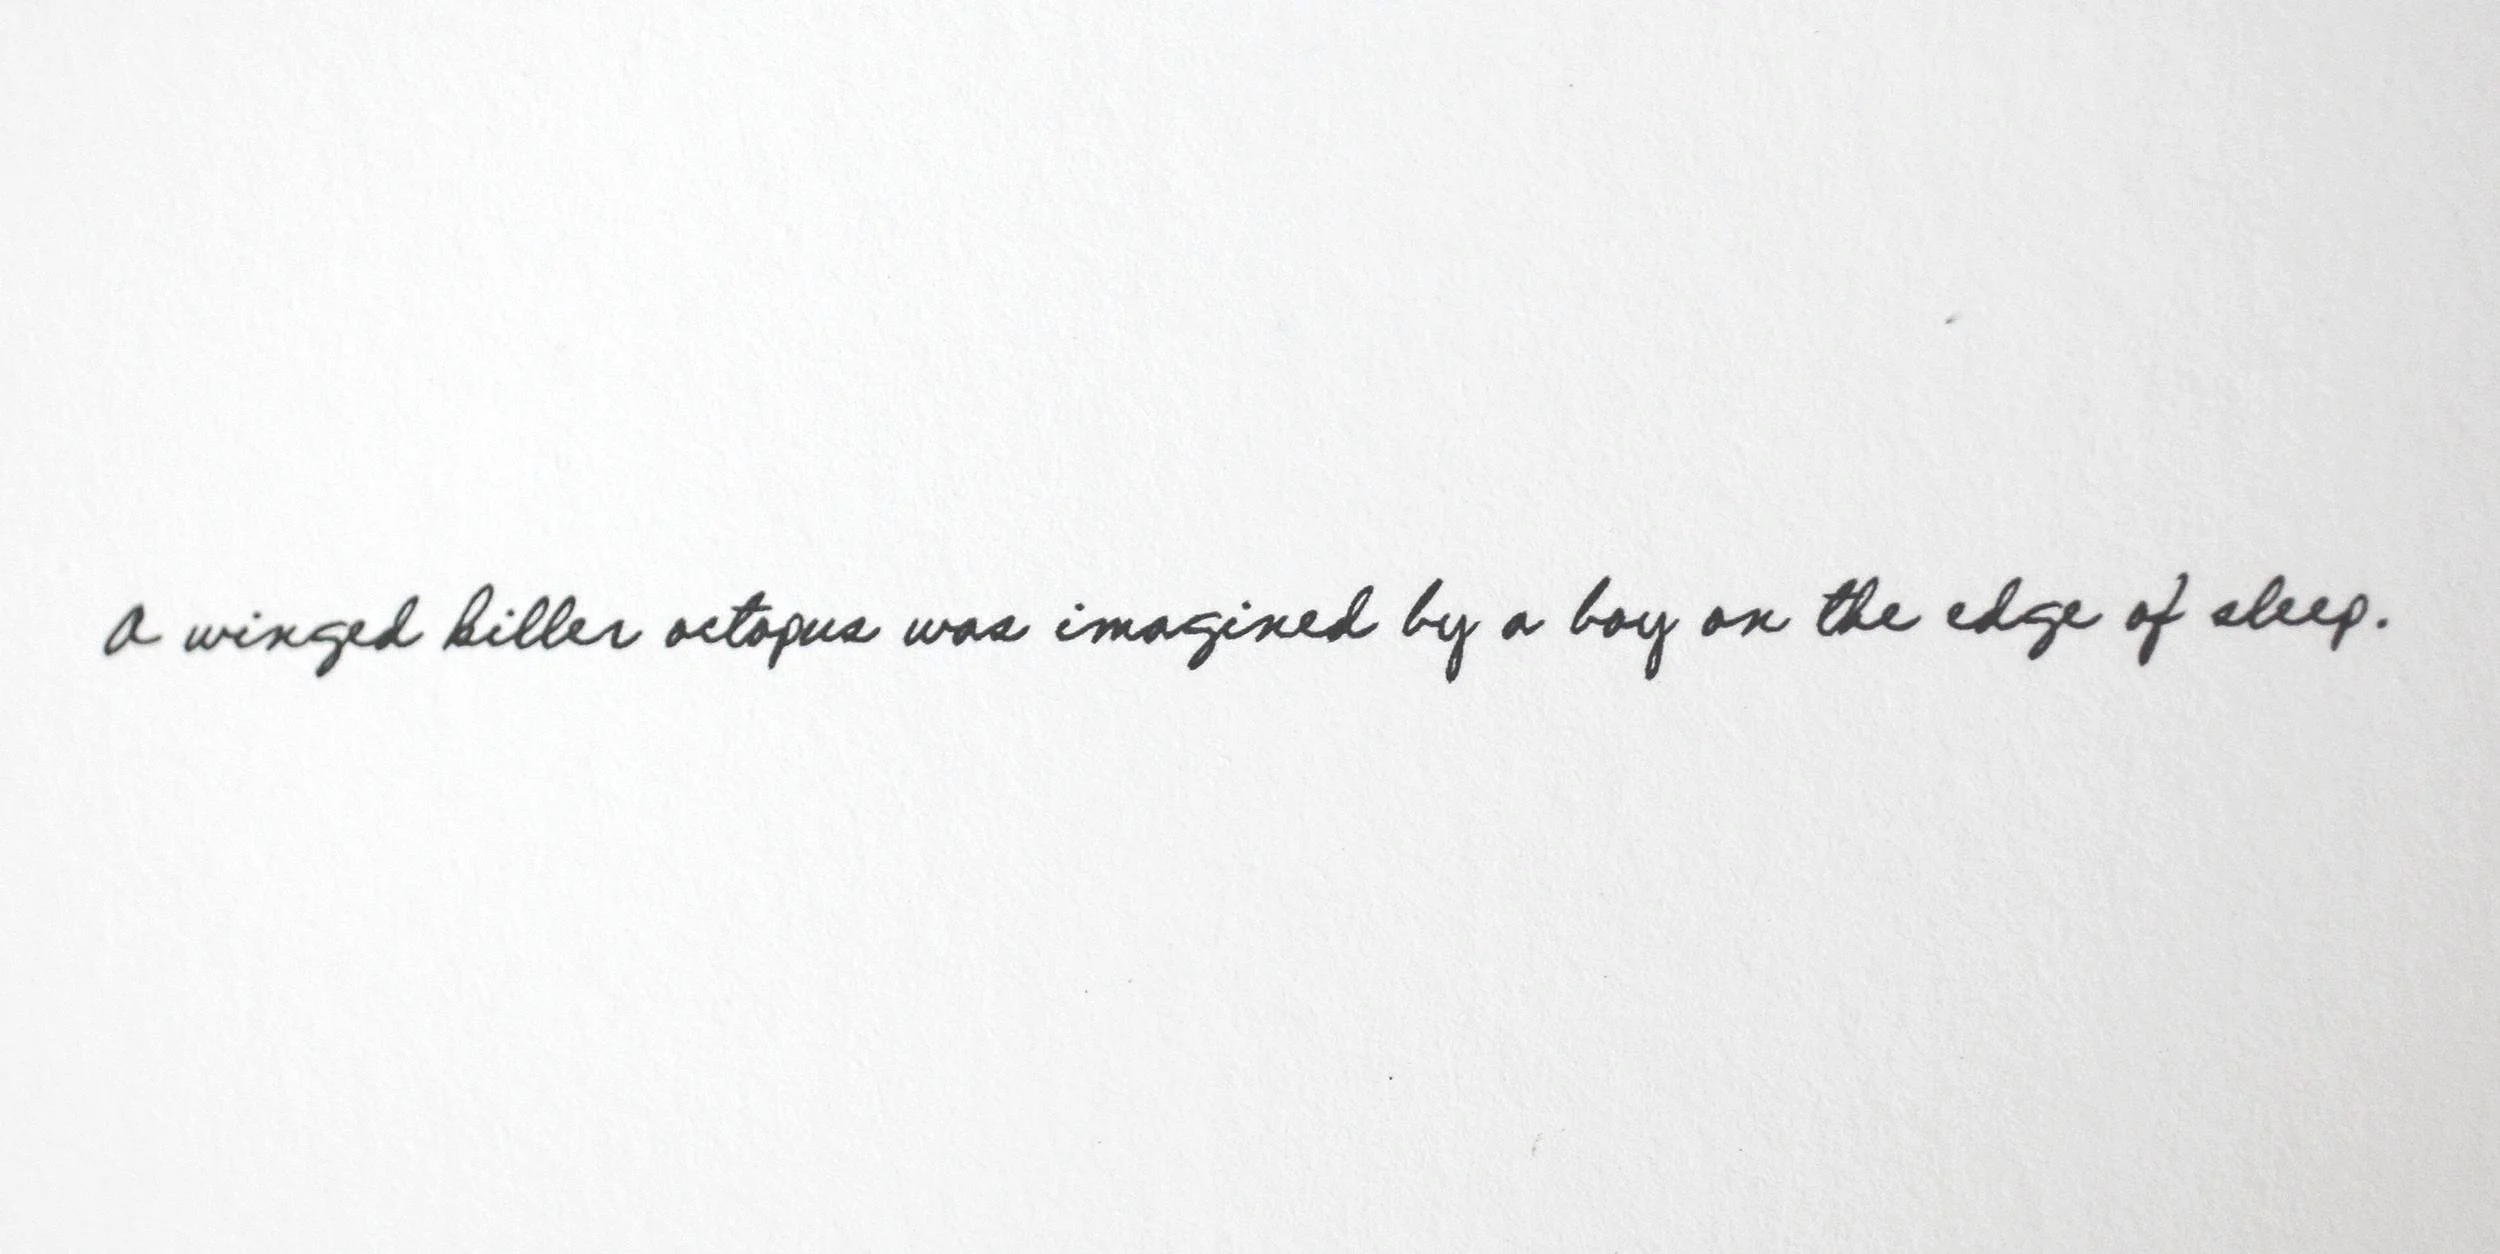 A winged killer octopus was imagined by a boy on the edge of sleep.